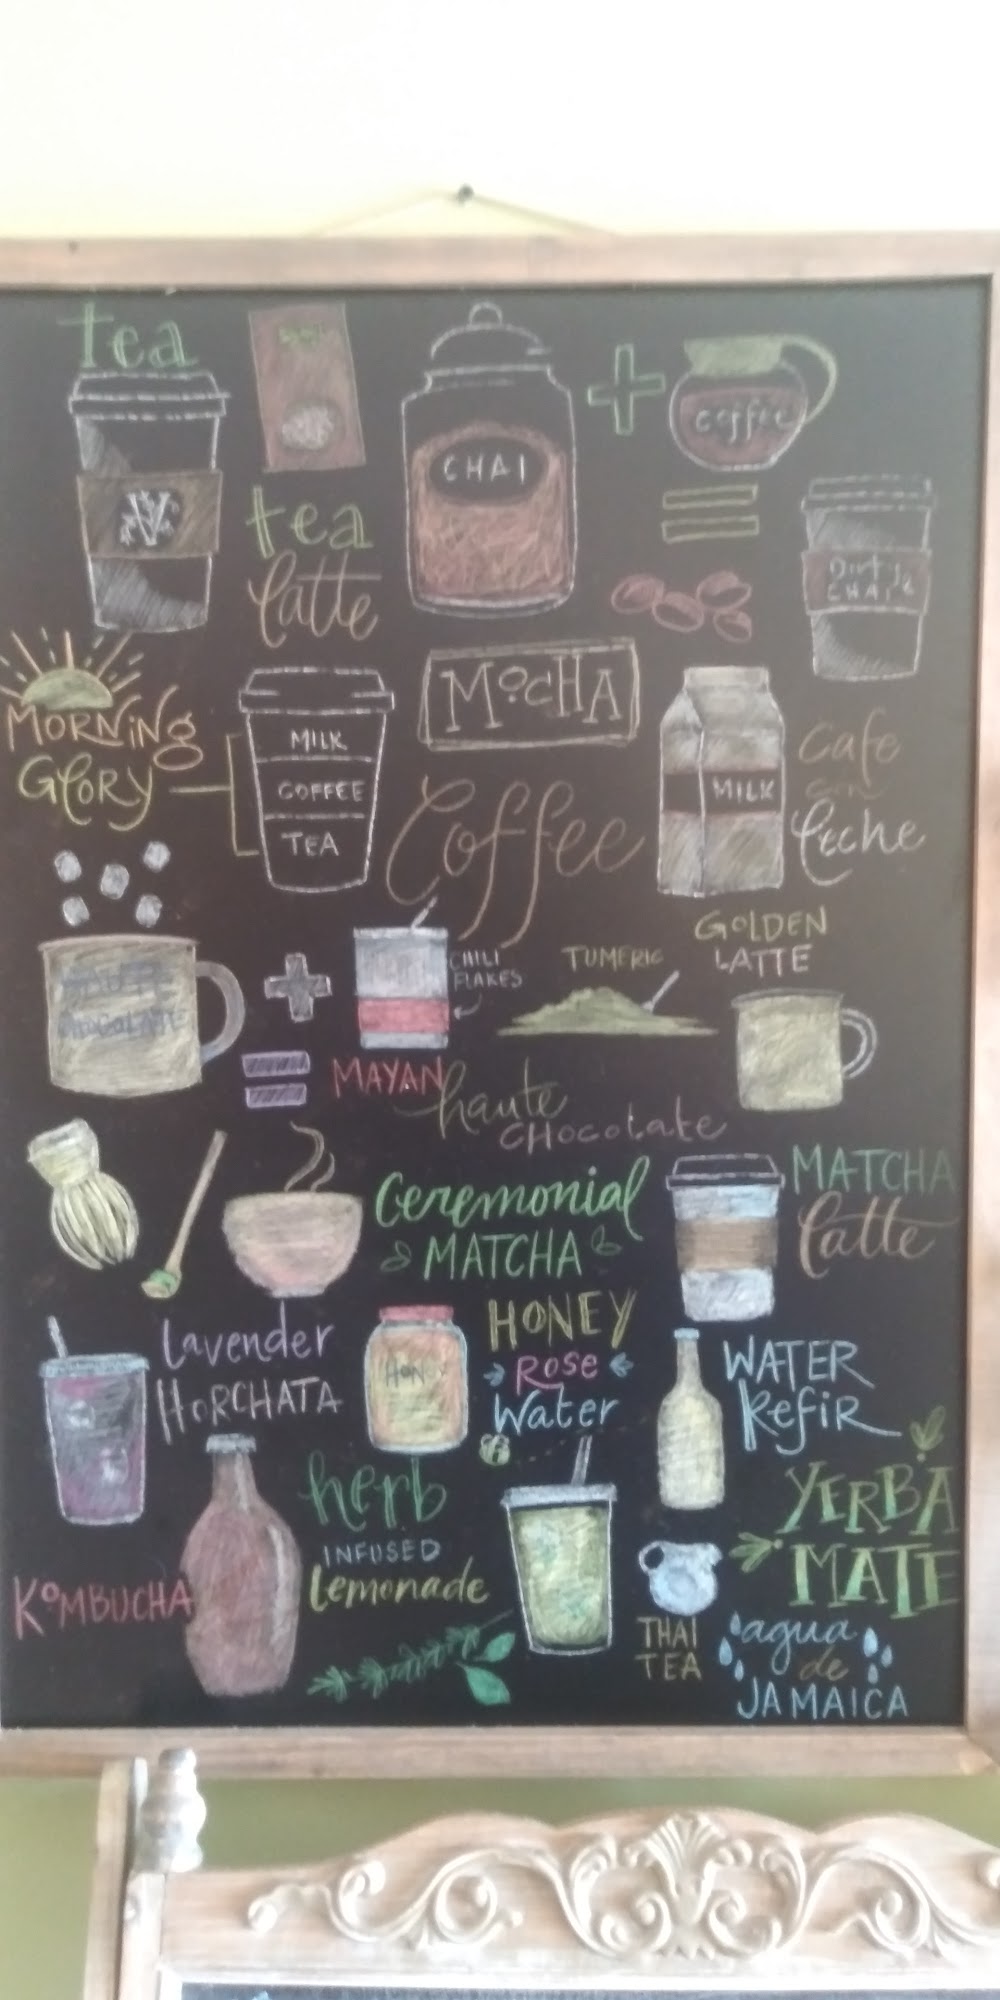 tea
CHAI
coffee
tea
latte
Dirty
CHAI
MORNING
GLORY
MILK
COFFEE
TEA
MOCHA
Coffee
MILK
Cafe
con
leche
HAUTE
CHOCOLATE
CHILI
FLAKES
MAYAN haute
CHOCOLATE
TUMERIC
GOLDEN
LATTE
Ceremonial
MATCHA
MATCHA
latte
Lavender
HORCHATA
HONEY
HONEY
Rose
Water
WATER
KefiR
KOMBUCHA
herb
INFUSED
Lemonade
YERBA
MATE
THAI
TEA
agua
de
JAMAICA